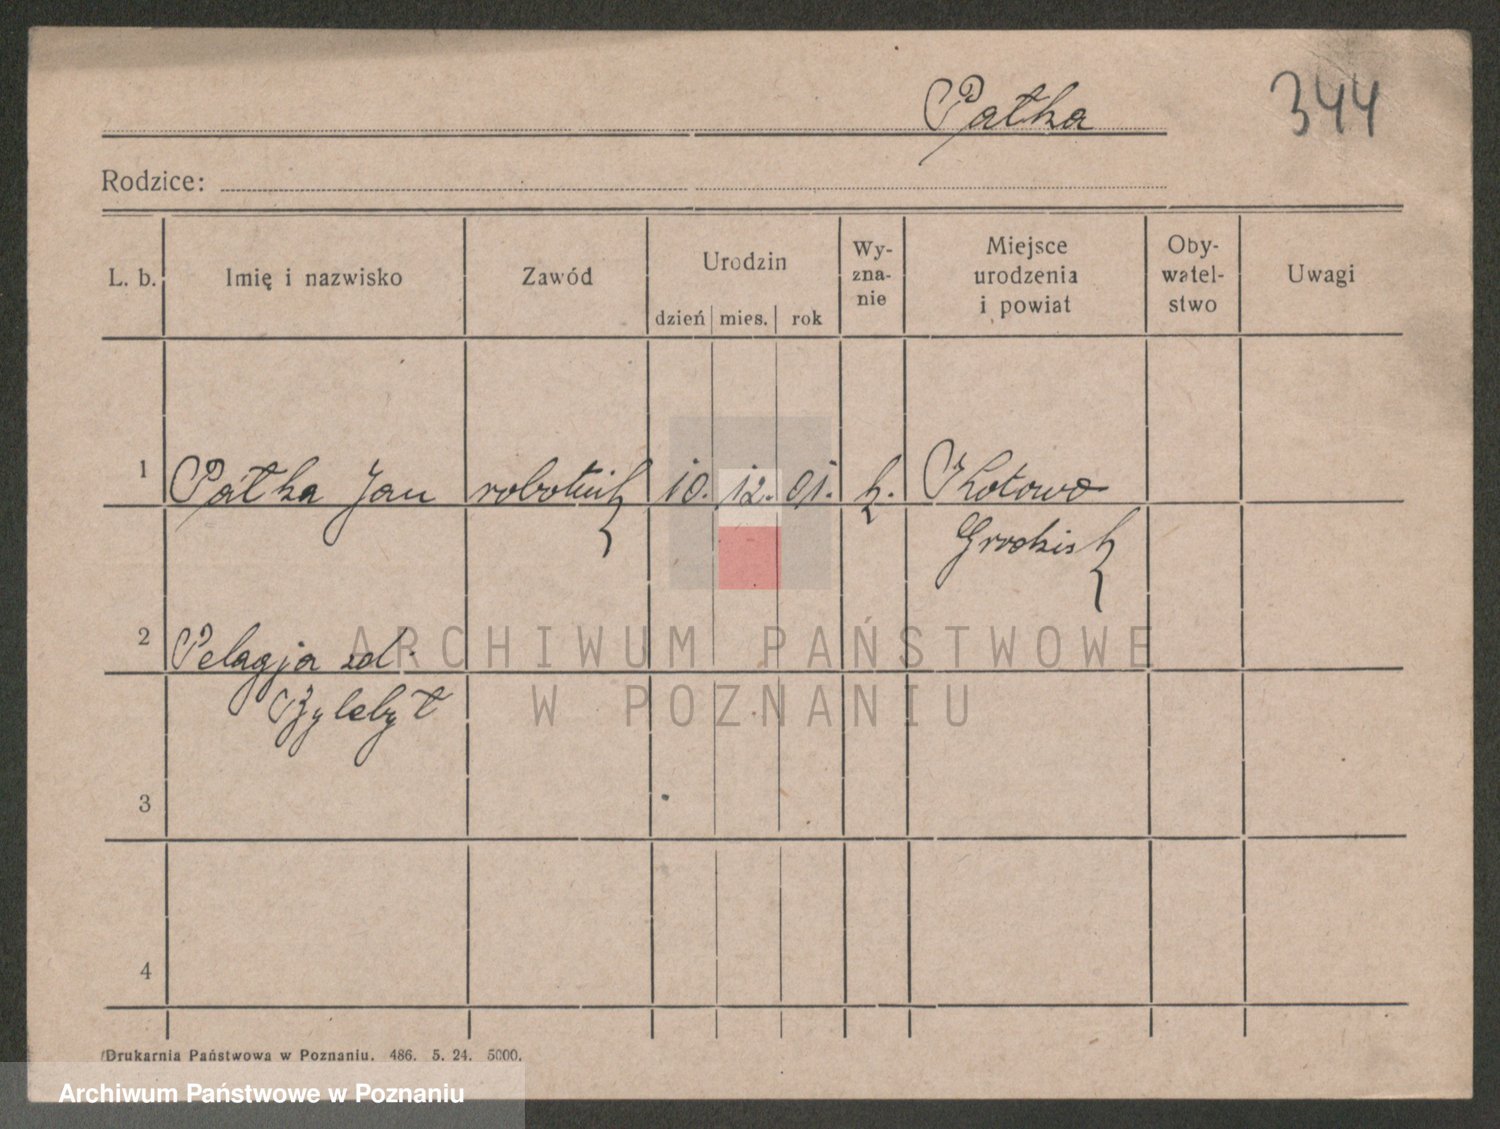 Pałka 344
Rodzice:
L. b. Imię i nazwisko Zawód Urodzin dzień mies. rok Wy-zna-nie Miejsce urodzenia i powiat Oby-watel-stwo Uwagi
1 Pałka Jan robotnik 10. 12. 01. k. Kotowo
Grodzisk
2 Pelagja zd.
3
4
Drukarnia Państwowa w Poznaniu. 486. 5. 24. 5000.
ARCHIWUM PAŃSTWOWE
W POZNANIU
Archiwum Państwowe w Poznaniu